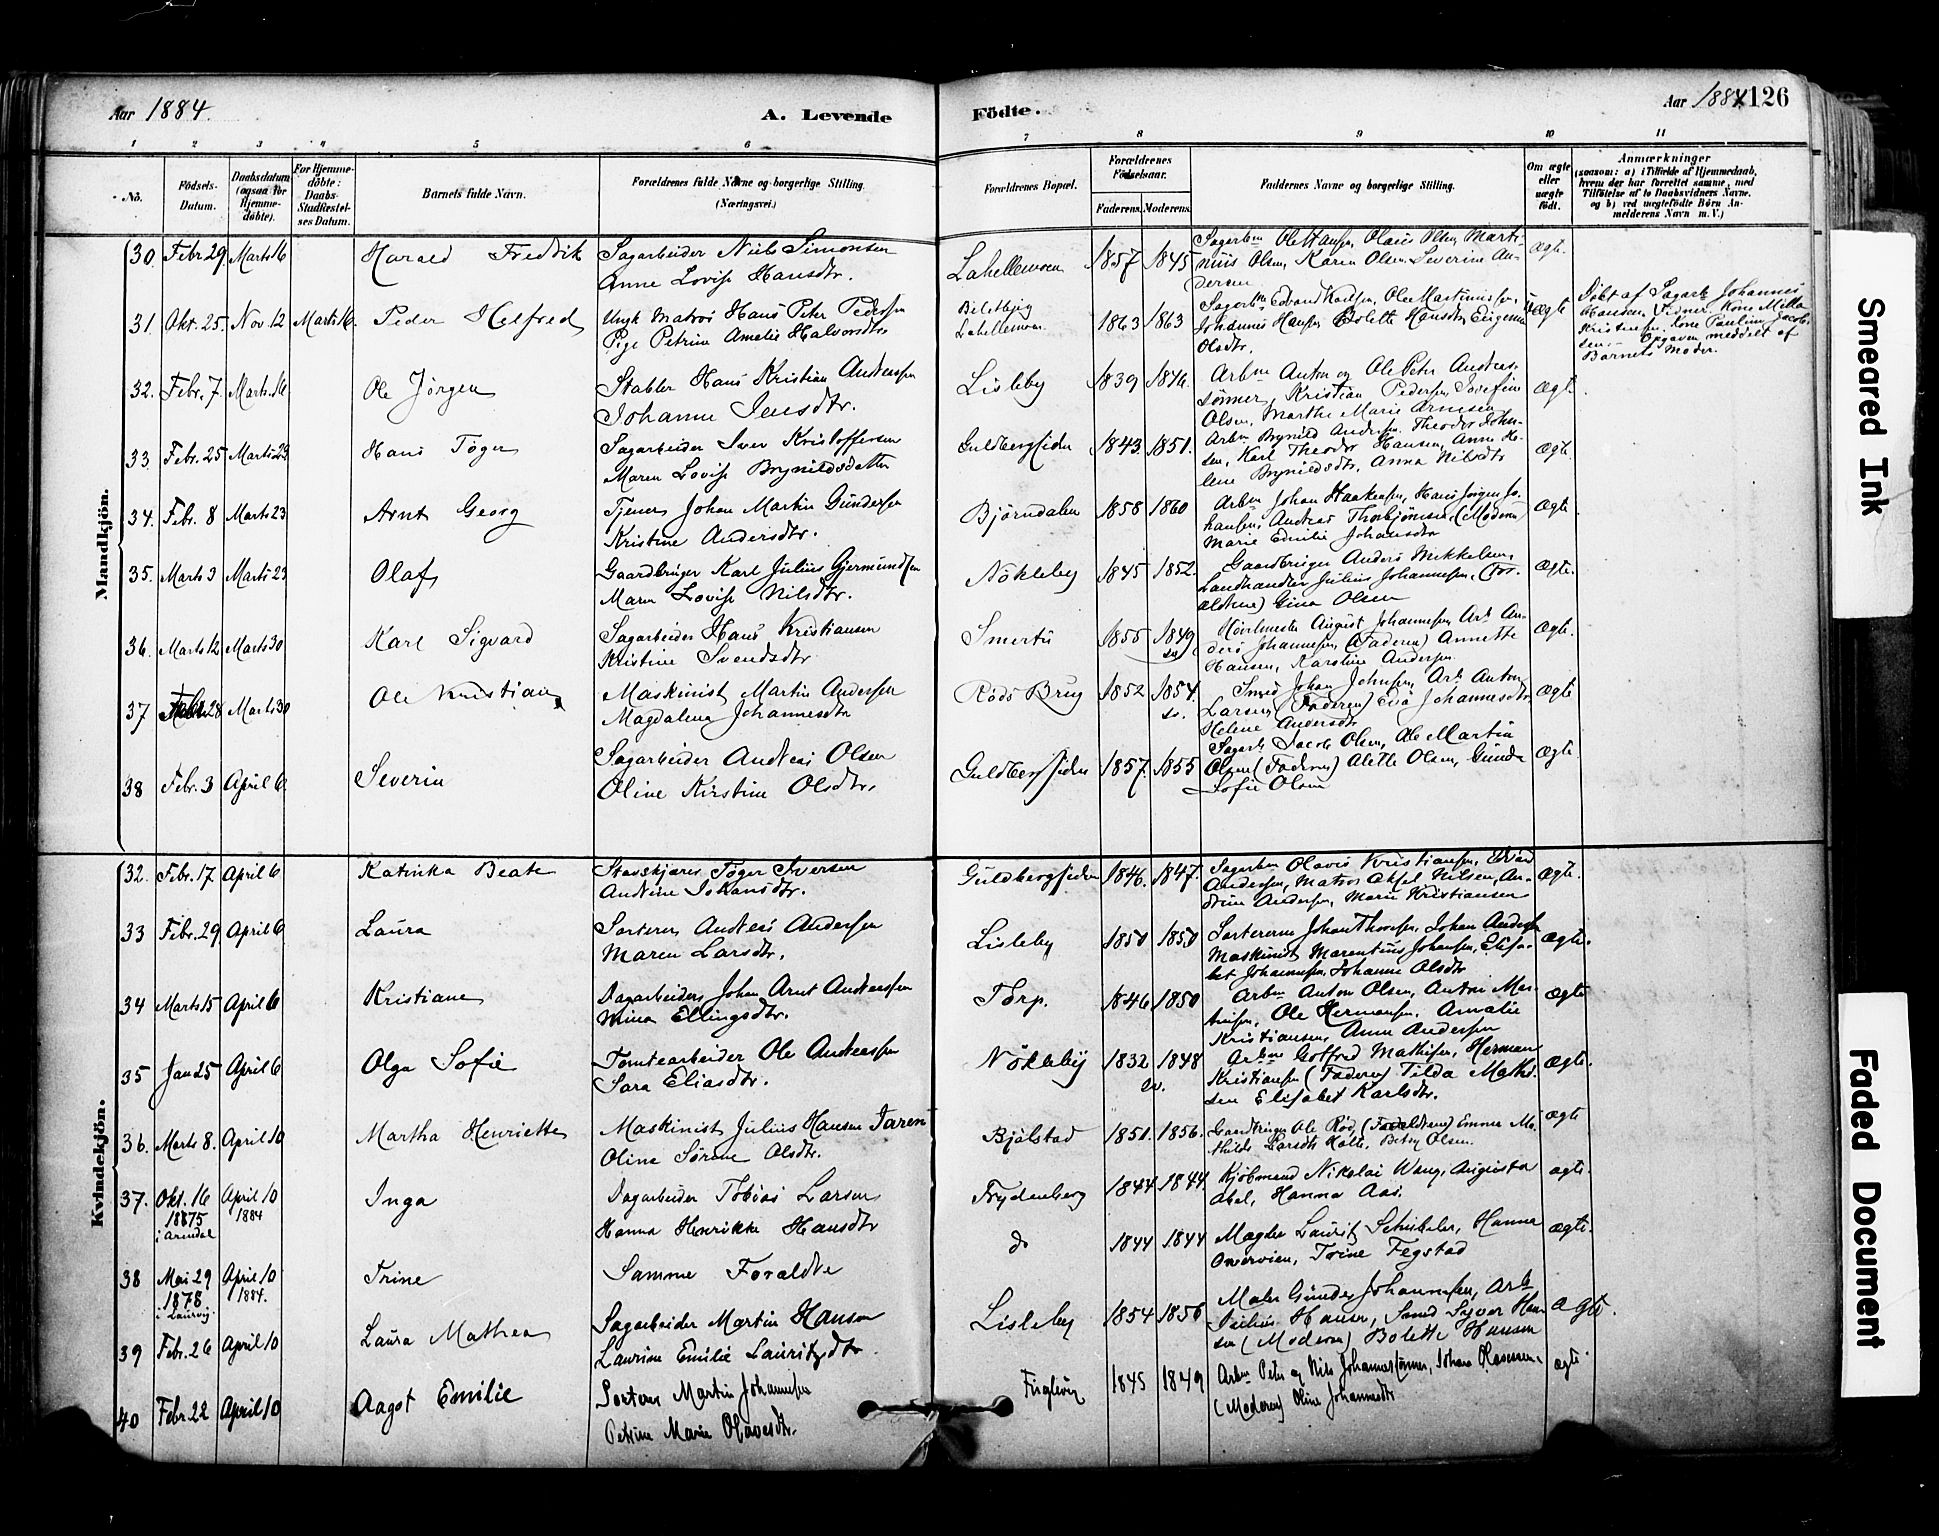 Aar 1884. A. Levende Födte. Aar 1884 126
1 2 3 4 5 6 7 8 9 10 11
No. Födsels-Datum. Daabsdatum (ogsaa for Hjemmedöbte). For Hjemmedöbte: Daabs-Stadfæstelses Datum. Barnets fulde Navn. Forældrenes fulde Navne og borgerlige Stilling. (Næringsvei.) Forældrenes Bopæl. Forældrenes Födselsaar. Faderens. Moderens. Faddernes Navne og borgerlige Stilling. Om ægte eller uægte födt. Anmærkninger (saasom: a) i Tilfælde af Hjemmedaab, hvem der har forrettet samme, med Tilföielse af to Daabsvidners Navne, og b) ved uægtefödte Börn Anmelderens Navn m. V.)
Mandkjön.
30. Febr 29. Marts 16 Harald Fredrik Sagarbeider Niels Simonsen
Anne Lovise Hansdtr. Lahellemoen 1857 1845 Sagarbm Ole Hansen, Olaus Olsen, Martinius Olsen, Karen Olsen, Severine Andersen ægte.
31. Okt. 25. Nov 12 Marts 16. Peder Helfred Ungk Matros Hans Peter Pedersen
Pige Petrine Amelie Halvorsdtr Lahellemoen 1863 1863 Johannes Hansen, Bolette Hansdtr, Eugenia Olsdtr. uægte Döbt af Sagarb. Johannes Hansen. Kone Pauline Jacobsen. - Opgaven meddelt af Barnets Moder.
32. Febr. 7. Marts 16 Ole Jörgen Stabler Hans Kristian Andreassen
Johanne Jensdtr. Lisleby 1839 1846. Arbm Anton og Ole Peter Andreassönner, Kristian Pedersen, Josefine Olsen, Marthe Marie Arnesen ægte
33. Febr. 25 Marts 23 Hans Töger Sagarbeider Iver Kristoffersen
Maren Lovise Brynildsdatter Guldbergsiden 1843. 1851. Arbm Brynild Andersen, Theodor Johnsen, Karl Theodor Hansen, Anne Helene Brynildsdtr, Anna Nilsdtr ægte.
34. Febr. 8 Marts 23 Arnt Georg Tjener Johan Martin Gundersen
Kristine Andersdtr. Björndalen 1858 1860 Arbm Johan Haakensen, Hans Jörgen Johansen, Andreas Thorbjörnsen, (Moderen) Marie Emilie Johansdtr ægte
35. Marts 3 Marts 23 Olaf Gaardbruger Karl Julius Gjermundsen
Maren Lovise Nilsdtr. Nökleby 1845 1852. Gaardbruger Anders Mikkelsen, Landhandler Julius Johannesen, (Forældrene) Gina Olsen ægte.
36. Marts 12 Marts 30 Karl Sigvard Sagarbeider Hans Kristiansen
Kristine Svendsdtr Smertu 1855 1849 August Johannesen, Arb. Anders Johannesen, (Faderen) Annette Hansen, Karoline Andersen ægte.
37 Febr 28 Marts 30 Ole Kristian Maskinist Martin Andersen
Magdalena Johannesdtr Röds Brug 1852 1854. Smed Johan Johnsen, Arb. Anton Larsen, (Faderen) Eva Johannesdtr, Helene Andersdtr ægte
38 Febr. 3 April 6. Severin Sagarbeider Andreas Olsen
Oline Kirstine Olsdtr. Guldbergsiden 1857. 1855 Sagarb. Jacob Olsen, Ole Martin Olsen (Faderen) Alette Olsen, Gunda Sofie Olsen ægte
Kvindekjön.
32. Febr. 17 April 6 Katinka Beate Stavskjærer Töger Iversen
Andrine Johansdtr. Guldbergsiden 1846. 1847. Sagarbm Olavis Kristiansen, Edvard Andersen, Matros Aksel Nilsen, Andrine Andersen, Marie Kristiansen ægte.
33 Febr. 29 April 6 Laura Sorterer Andreas Andersen
Maren Larsdtr. Lisleby 1850 1850 Sortererne Johan Thoresen, Johan Andersen, Maskinist Marentius Johansen, Elisabet Johannesen, Johanne Olsdtr ægte.
34 Marts 15 April 6 Kristiane Dagarbeider Johan Arnt Andreassen
Mina Ellingsdtr. Torp. 1846 1850 Arbm Anton Olsen, Anton Martinsen, Ole Hermansen, Amalie Kristiansen, Anne Andersen ægte
35 Jan 25 April 6 Olga Sofie Tomtearbeider Ole Andreassen
Sara Eliasdtr. Nökleby 1832 1848 Arbm Gotfred Mathisen, Herman Kristiansen (Faderen) Tilda Mathisen Elisabet Karlsdtr. ægte.
36. Marts 8. April 10 Martha Henriette Maskinist Julius Hansen Taren
Oline Sörine Olsdtr. Bjölstad 1851. 1856. Gaardbruger Ole Röd, (Forældrene) Emma Mathilde Larsdtr Holte, Betsy Olsen. ægte
37. Okt. 16 1875 i Arendal April 10 1884 Inga Dagarbeider Tobias Larsen
Hanna Henrikke Hansdtr Frydenberg 1844 1844 Kjöbmand Nikolai Wang, Augusta Abel, Hanna Aas. ægte
38 Mai 29 1878 i Laurvig. April 10 1884. Trine Samme Forældre do 1844 1844 Magler Lauritz Schibeler, Hanna Onservien, Trine Fegstad ægte.
39 Febr. 26 April 10 Laura Mathea Sagarbeider Martin Hansen
Laurine Emilie Lauritzdtr. Lisleby 1854 1856 Maler Gunder Johannesen, Arb. Julius Hansen, Smed Syver Hansen (Moderen) Bolette Hansen ægte.
40 Febr. 22 April 10 Aagot Emilie Sorterer Martin Johannesen
Petrine Marie Olavesdtr. Finglevig 1845 1849 Arbm Peter og Nils Johannessönner, Johan Olavesen, (Moderen) Oline Johannesdtr ægte
Smeared Ink
Faded Document